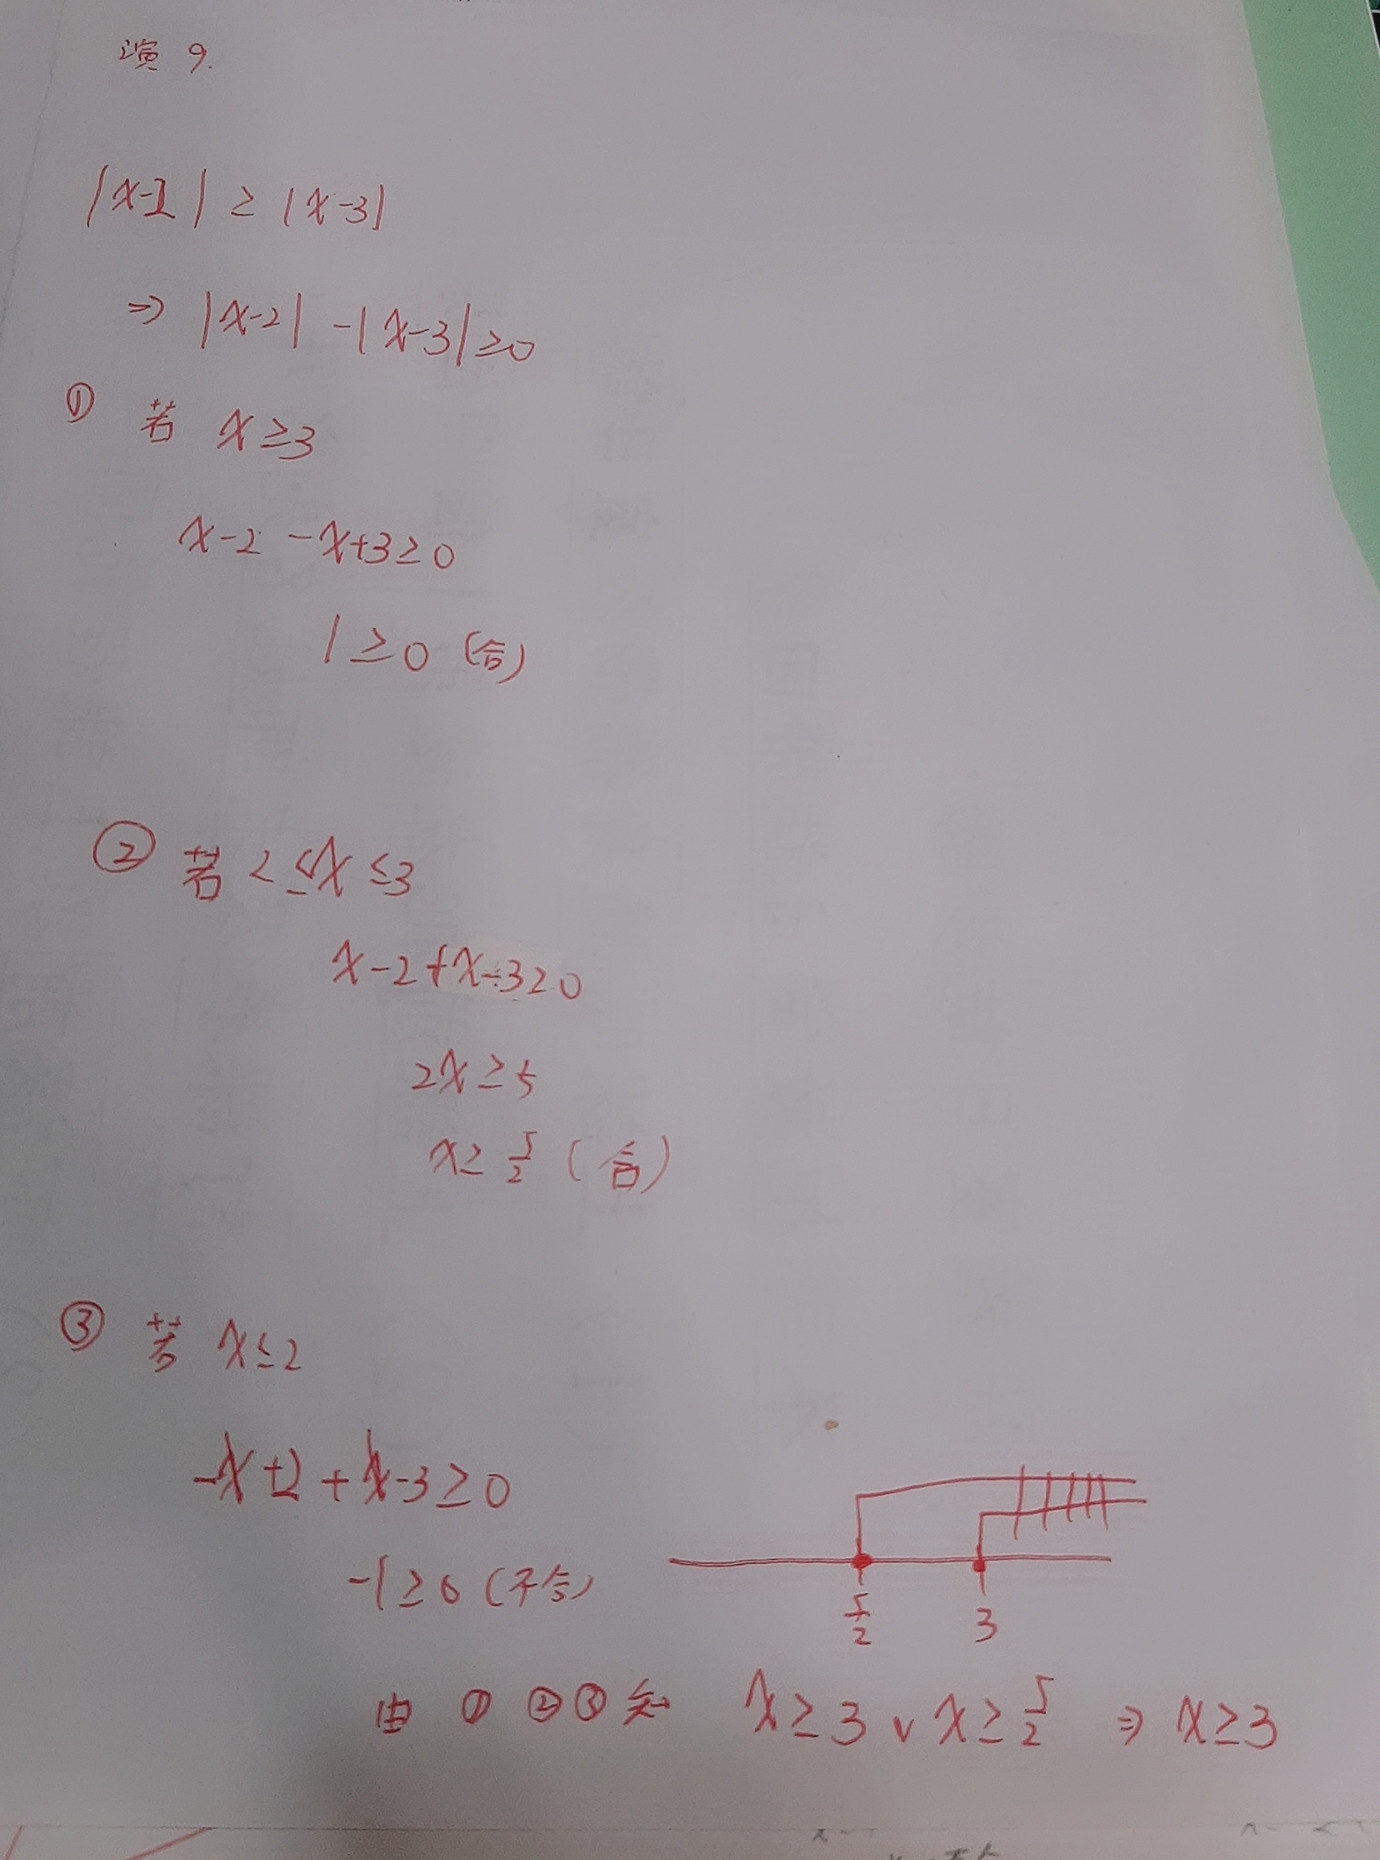 演 9.
|x-2| ≥ |x-3|
⇒ |x-2| -|x-3| ≥0
① 若 x ≥3
x-2 -x+3 ≥ 0
1 ≥ 0 (合)
② 若 2 ≤ x ≤3
x-2+x-3≥0
2x ≥ 5
x≥ 5/2 (合)
③ 若 x≤2
-x+2 + x-3 ≥ 0
-1 ≥ 0 (不合)
5/2 3
由 ① ② ③ 知 x ≥ 3 ∨ x ≥ 5/2 ⇒ x ≥3